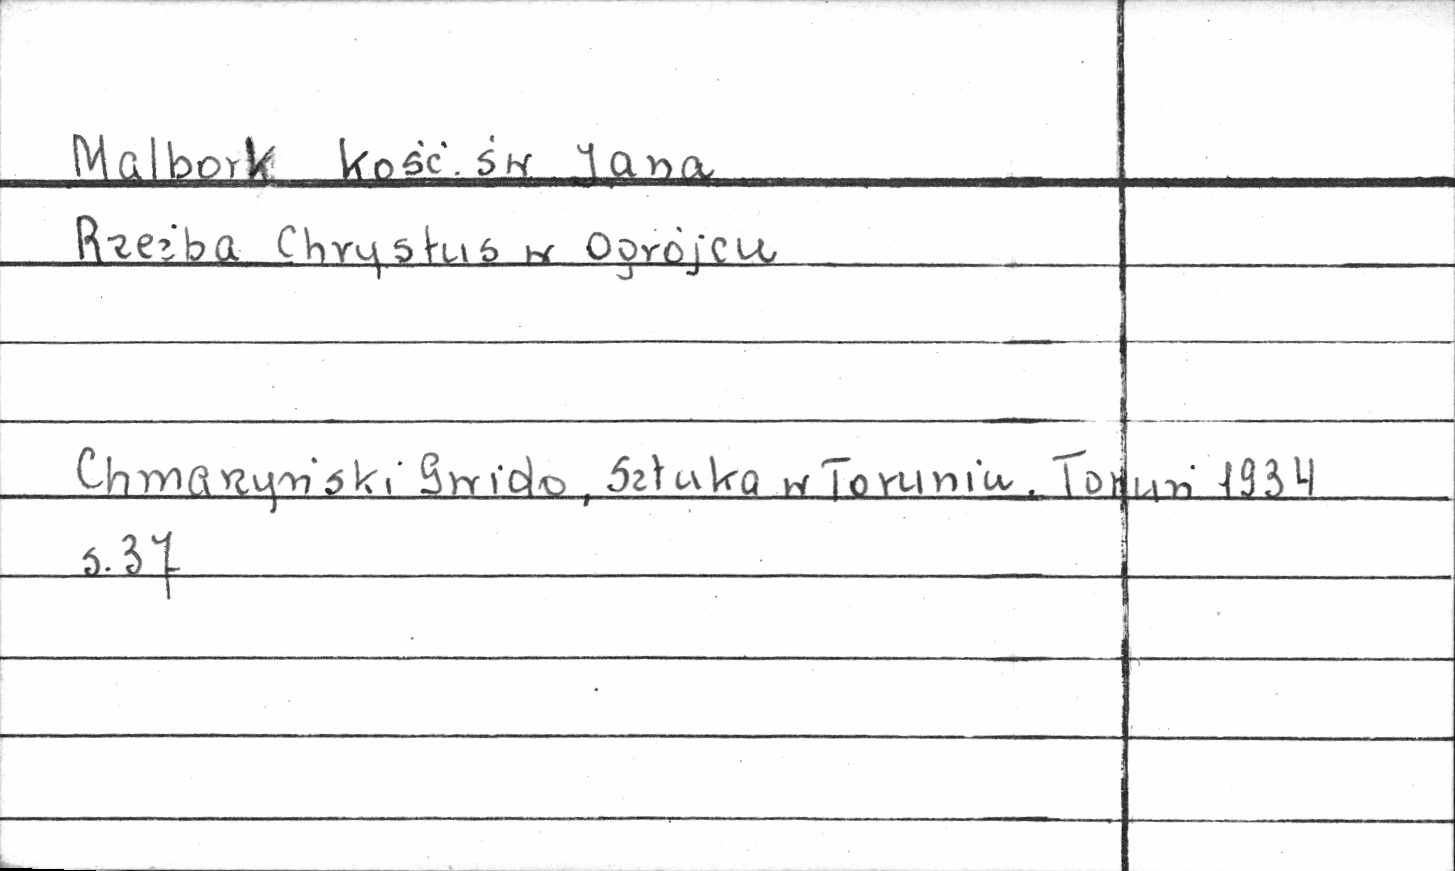 Malbork kość. św Jana
Rzeźba Chrystus w Ogrójcu
Chmarzyński Gwido, Sztuka w Toruniu. Toruń 1934
s. 37